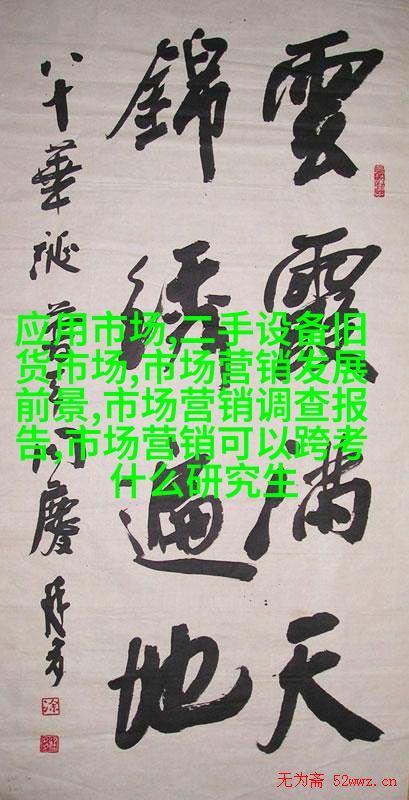 雲霞滿天
錦绣遍地
八十華诞普天同慶
应用市场,二手设备旧
货市场,市场营销发展
前景,市场营销调查报
告,市场营销可以跨考
什么研究生
无为斋 52wwz.cn